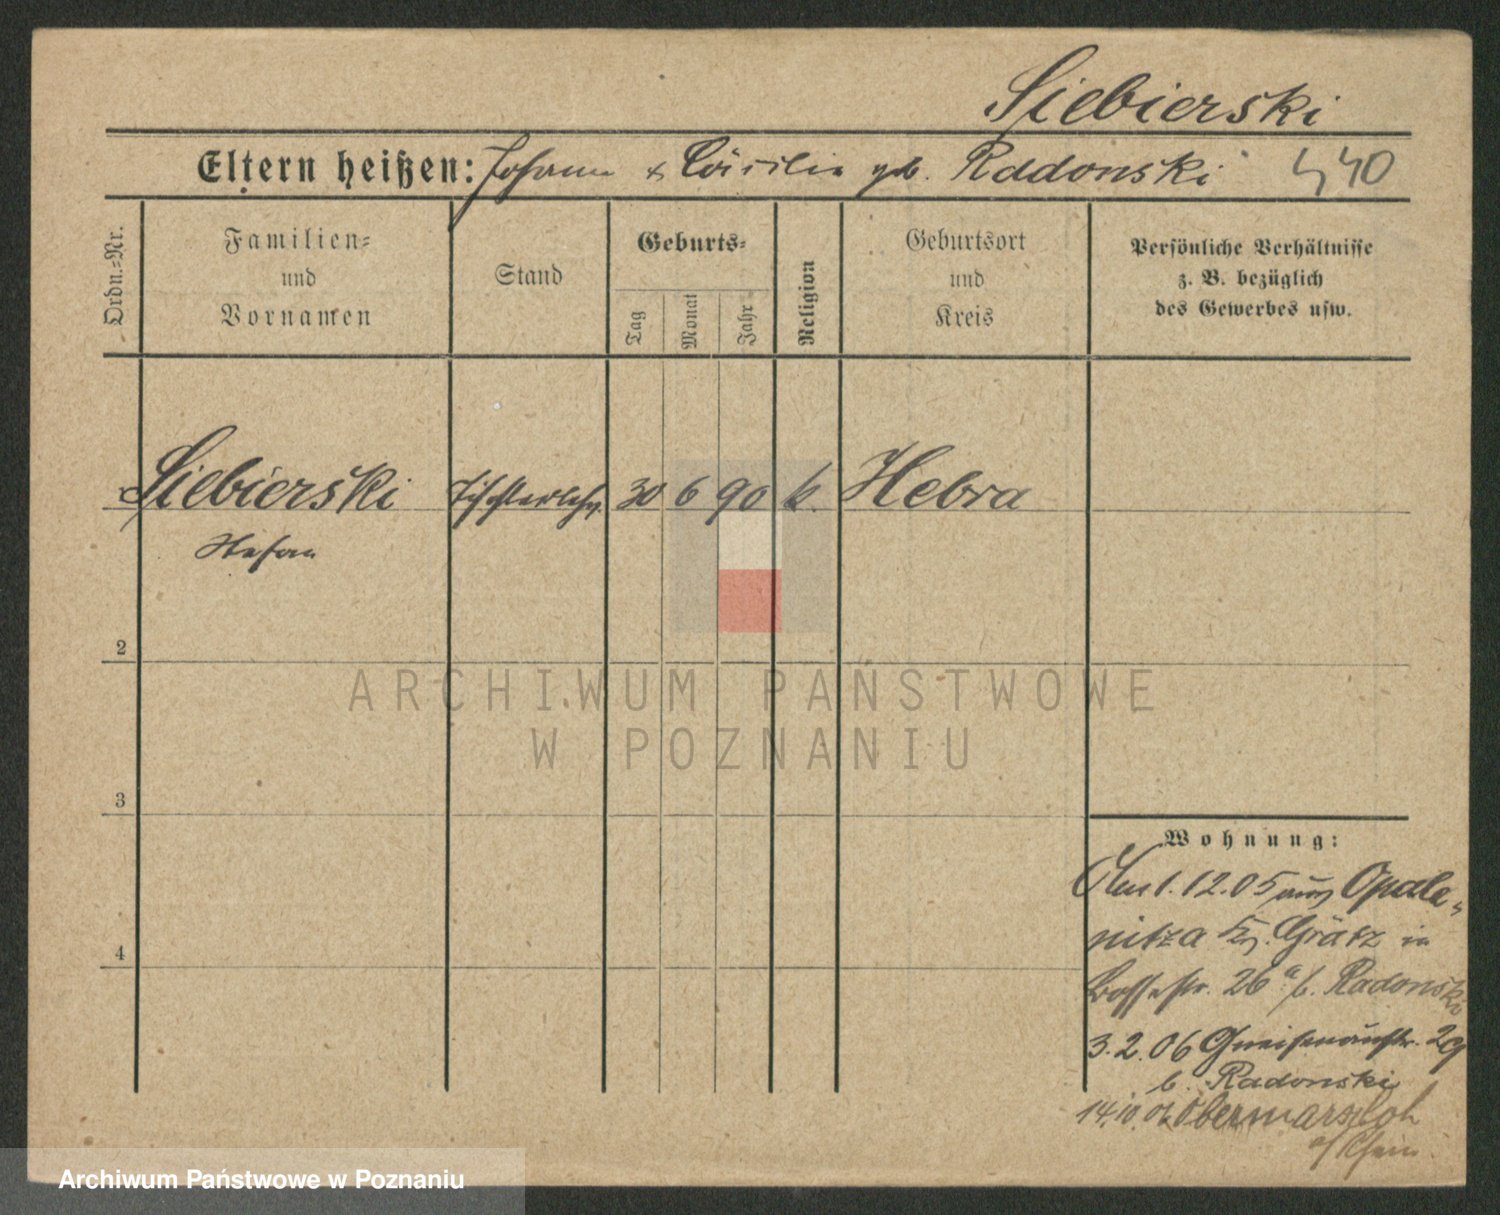 Siebierski
Eltern heißen: Johann & Cäcilie gb. Raddonski
440
Ordn.-Nr.
Familien- und Vornamen
Stand
Geburts-
Tag
Monat
Jahr
Religion
Geburtsort und Kreis
Persönliche Verhältnisse
z. B. bezüglich
des Gewerbes usw.
Siebierski Tischlerlehrl. 30 6 90 k. Hebra
Stefan
2
3
4
ARCHIWUM PAŃSTWOWE
W POZNANIU
Wohnung:
Am 1.12.05 aus Opale-
nitza Kr. Grätz in
26a b. Radonski
3.2.06 Gneisenaustr. 29
b. Radonski
14.10. Obermarxloh
a/Rhein.
Archiwum Państwowe w Poznaniu